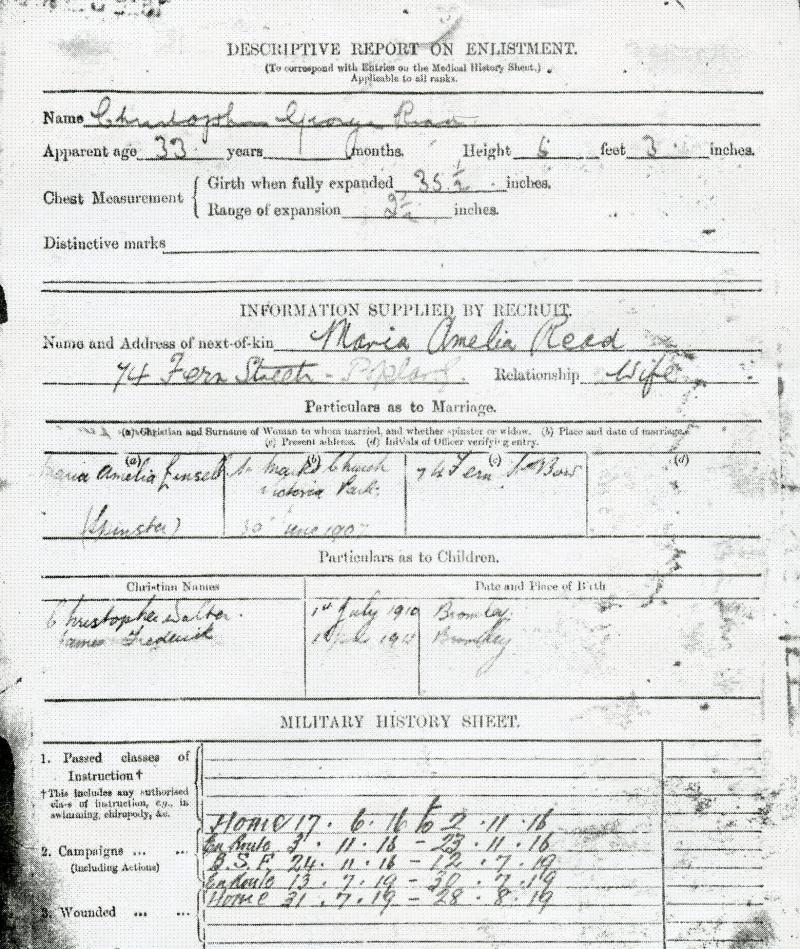 DESCRIPTIVE REPORT ON ENLISTMENT.
(To correspond with Entries on the Medical History Sheet.)
Applicable to all ranks.
Name Christopher George Read
Apparent age 33 years months. Height 6 feet 3 inches.
Chest Measurement { Girth when fully expanded 35 1/2 inches.
Range of expansion 2 1/2 inches.
Distinctive marks
INFORMATION SUPPLIED BY RECRUIT.
Name and Address of next-of-kin Maria Amelia Read
74 Fern Street - Poplar. Relationship Wife
Particulars as to Marriage.
(a) Christian and Surname of Woman to whom married, and whether spinster or widow. (b) Place and date of marriage.
(c) Present address. (d) Initials of Officer verifying entry.
(a) (b) (c) (d)
Maria Amelia St Marks Church 74 Fern St Bow
Victoria Park
(Spinster) June 1907
Particulars as to Children.
Christian Names Date and Place of Birth
Christopher Walter. 1st July 1910 Bromley
James Frederick Bromley
MILITARY HISTORY SHEET.
1. Passed classes of
Instruction†
†This includes any authorised
class of instruction, e.g., in
swimming, chiropody, &c.
Home 17.6.16 to 2.11.16
2. Campaigns ... ...
(including Actions)
En Route 3.11.16 - 23.11.16
B.S.F. 24.11.16 - 12.7.19
En Route 13.7.19 - 30.7.19
Home 31.7.19 - 28.8.19
3. Wounded ... ...